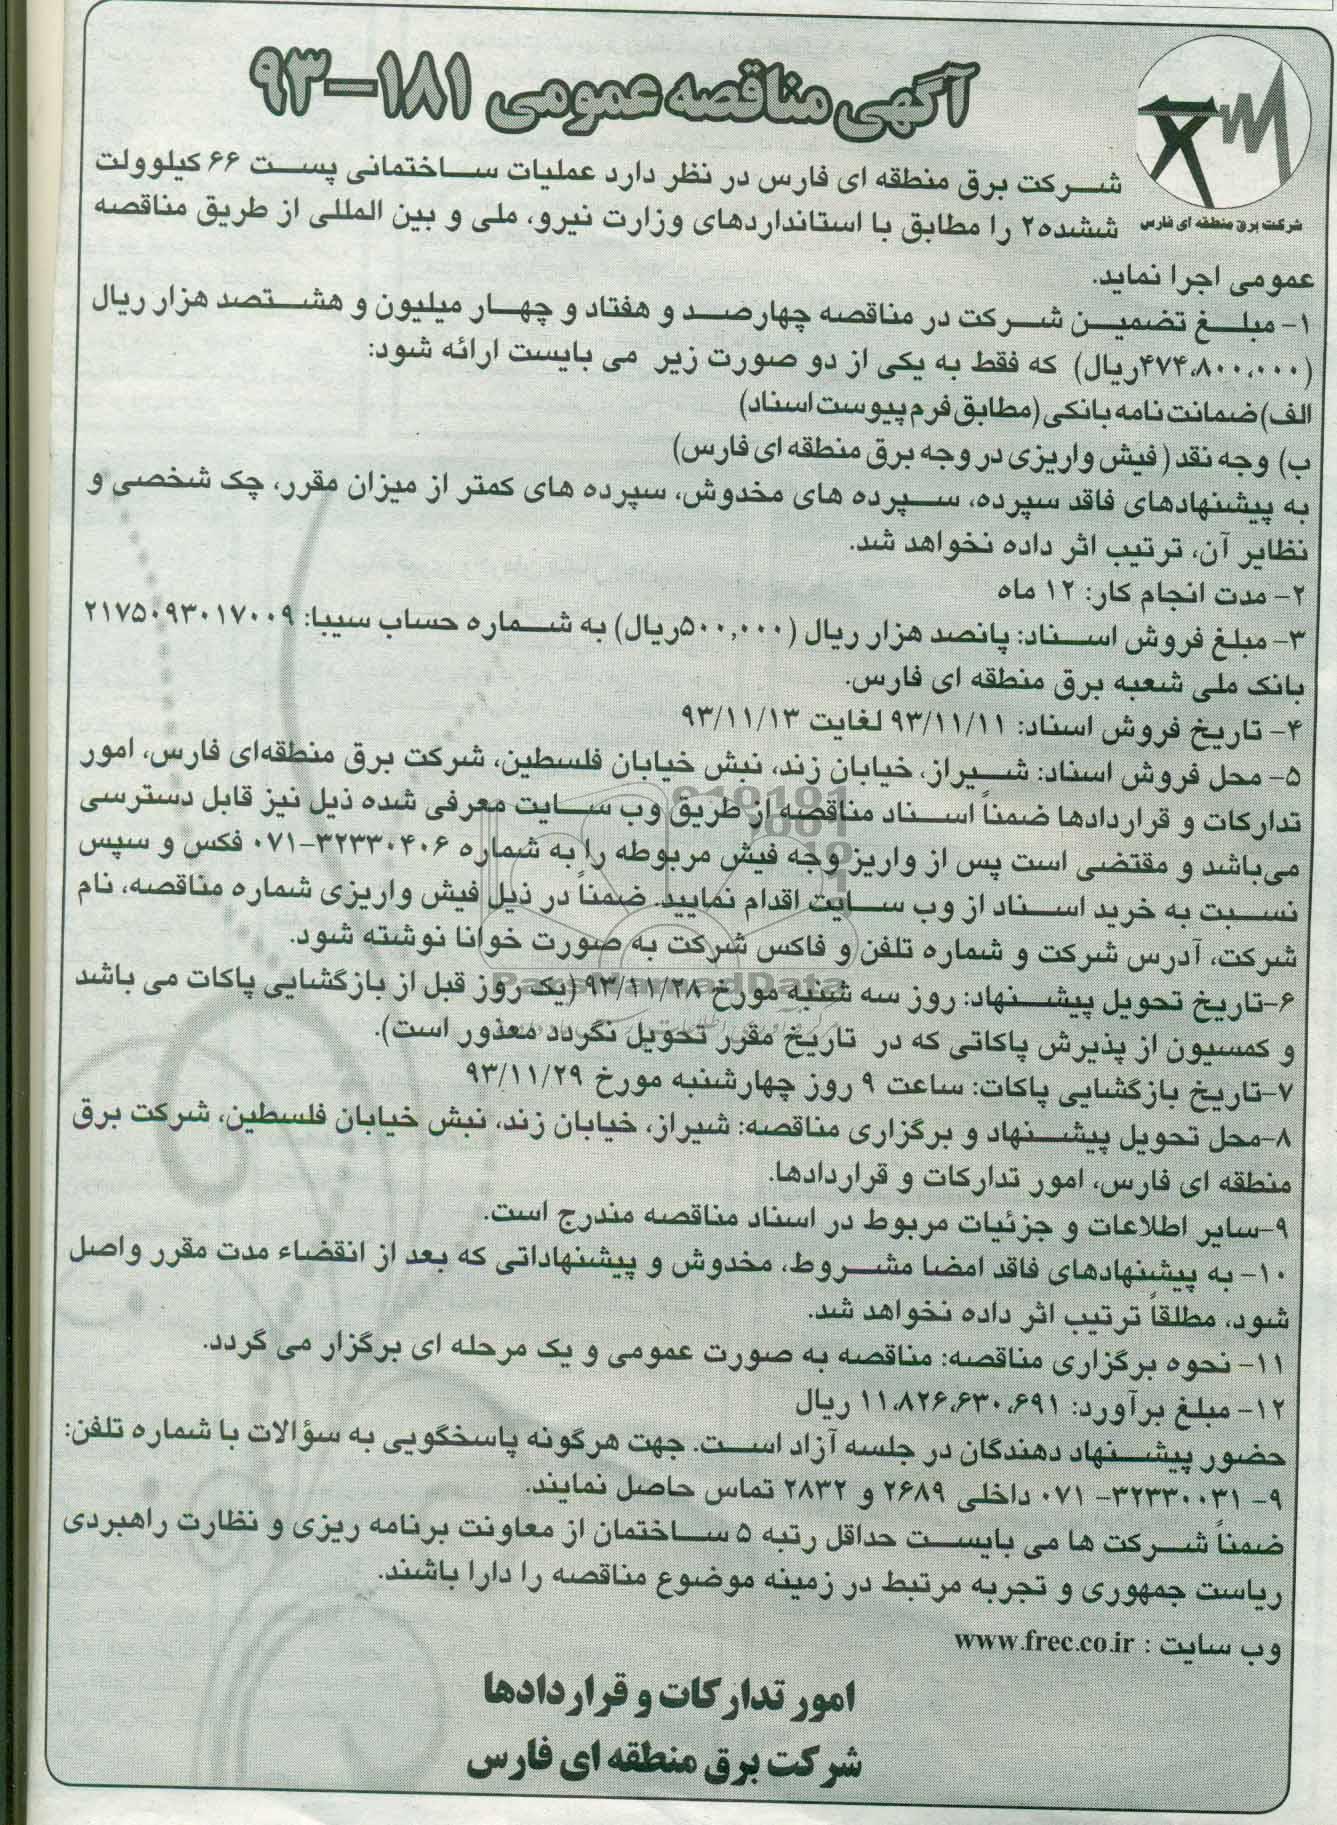 آگهی مناقصه عمومی ۱۸۱-۹۳
شرکت برق منطقه ای فارس
شرکت برق منطقه ای فارس در نظر دارد عملیات ساختمانی پست ۶۶ کیلوولت
ششده۲ را مطابق با استانداردهای وزارت نیرو، ملی و بین المللی از طریق مناقصه
عمومی اجرا نماید.
۱- مبلغ تضمین شرکت در مناقصه چهارصد و هفتاد و چهار میلیون و هشتصد هزار ریال
(۴۷۴،۸۰۰،۰۰۰ریال) که فقط به یکی از دو صورت زیر می بایست ارائه شود:
الف) ضمانت نامه بانکی (مطابق فرم پیوست اسناد)
ب) وجه نقد (فیش واریزی در وجه برق منطقه ای فارس)
به پیشنهادهای فاقد سپرده، سپرده های مخدوش، سپرده های کمتر از میزان مقرر، چک شخصی و
نظایر آن، ترتیب اثر داده نخواهد شد.
۲- مدت انجام کار: ۱۲ ماه
۳- مبلغ فروش اسناد: پانصد هزار ریال (۵۰۰,۰۰۰ریال) به شماره حساب سیبا: ۲۱۷۵۰۹۳۰۱۷۰۰۹
بانک ملی شعبه برق منطقه ای فارس.
۴- تاریخ فروش اسناد: ۹۳/۱۱/۱۱ لغایت ۹۳/۱۱/۱۳
۵- محل فروش اسناد: شیراز، خیابان زند، نبش خیابان فلسطین، شرکت برق منطقه‌ای فارس، امور
تدارکات و قراردادها ضمناً اسناد مناقصه از طریق وب سایت معرفی شده ذیل نیز قابل دسترسی
می‌باشد و مقتضی است پس از واریز وجه فیش مربوطه را به شماره ۳۲۳۳۰۴۰۶-۰۷۱ فکس و سپس
نسبت به خرید اسناد از وب سایت اقدام نمایید. ضمناً در ذیل فیش واریزی شماره مناقصه، نام
شرکت، آدرس شرکت و شماره تلفن و فاکس شرکت به صورت خوانا نوشته شود.
ParsNamadData
۶-تاریخ تحویل پیشنهاد: روز سه شنبه مورخ ۹۳/۱۱/۲۸ (یک روز قبل از بازگشایی پاکات می باشد
و کمسیون از پذیرش پاکاتی که در تاریخ مقرر تحویل نگردد معذور است).
۷-تاریخ بازگشایی پاکات: ساعت ۹ روز چهارشنبه مورخ ۹۳/۱۱/۲۹
۸-محل تحویل پیشنهاد و برگزاری مناقصه: شیراز، خیابان زند، نبش خیابان فلسطین، شرکت برق
منطقه ای فارس، امور تدارکات و قراردادها.
۹-سایر اطلاعات و جزئیات مربوط در اسناد مناقصه مندرج است.
۱۰- به پیشنهادهای فاقد امضا مشروط، مخدوش و پیشنهاداتی که بعد از انقضاء مدت مقرر واصل
شود، مطلقاً ترتیب اثر داده نخواهد شد.
۱۱- نحوه برگزاری مناقصه: مناقصه به صورت عمومی و یک مرحله ای برگزار می گردد.
۱۲- مبلغ برآورد: ۱۱،۸۲۶،۶۳۰،۶۹۱ ریال
حضور پیشنهاد دهندگان در جلسه آزاد است. جهت هرگونه پاسخگویی به سؤالات با شماره تلفن:
۹- ۳۲۳۳۰۰۳۱- ۰۷۱ داخلی ۲۶۸۹ و ۲۸۳۲ تماس حاصل نمایند.
ضمناً شرکت ها می بایست حداقل رتبه ۵ ساختمان از معاونت برنامه ریزی و نظارت راهبردی
ریاست جمهوری و تجربه مرتبط در زمینه موضوع مناقصه را دارا باشند.
وب سایت : www.frec.co.ir
امور تدارکات و قراردادها
شرکت برق منطقه ای فارس